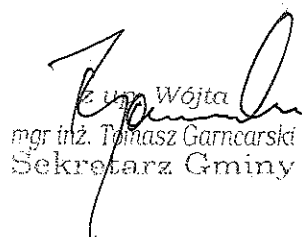 z up. Wójta
mgr inż. Tomasz Garncarski
Sekretarz Gminy